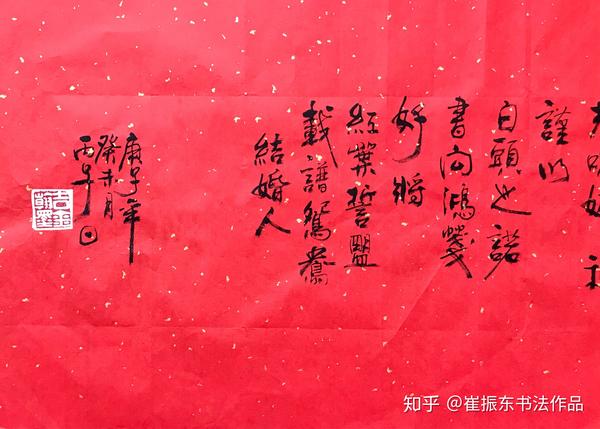 謹以
白頭之諾
書向鴻箋
好將
紅葉誓盟
載譜鴛鴦
結婚人
庚子年
癸未月
丙午日
知乎 @崔振东书法作品